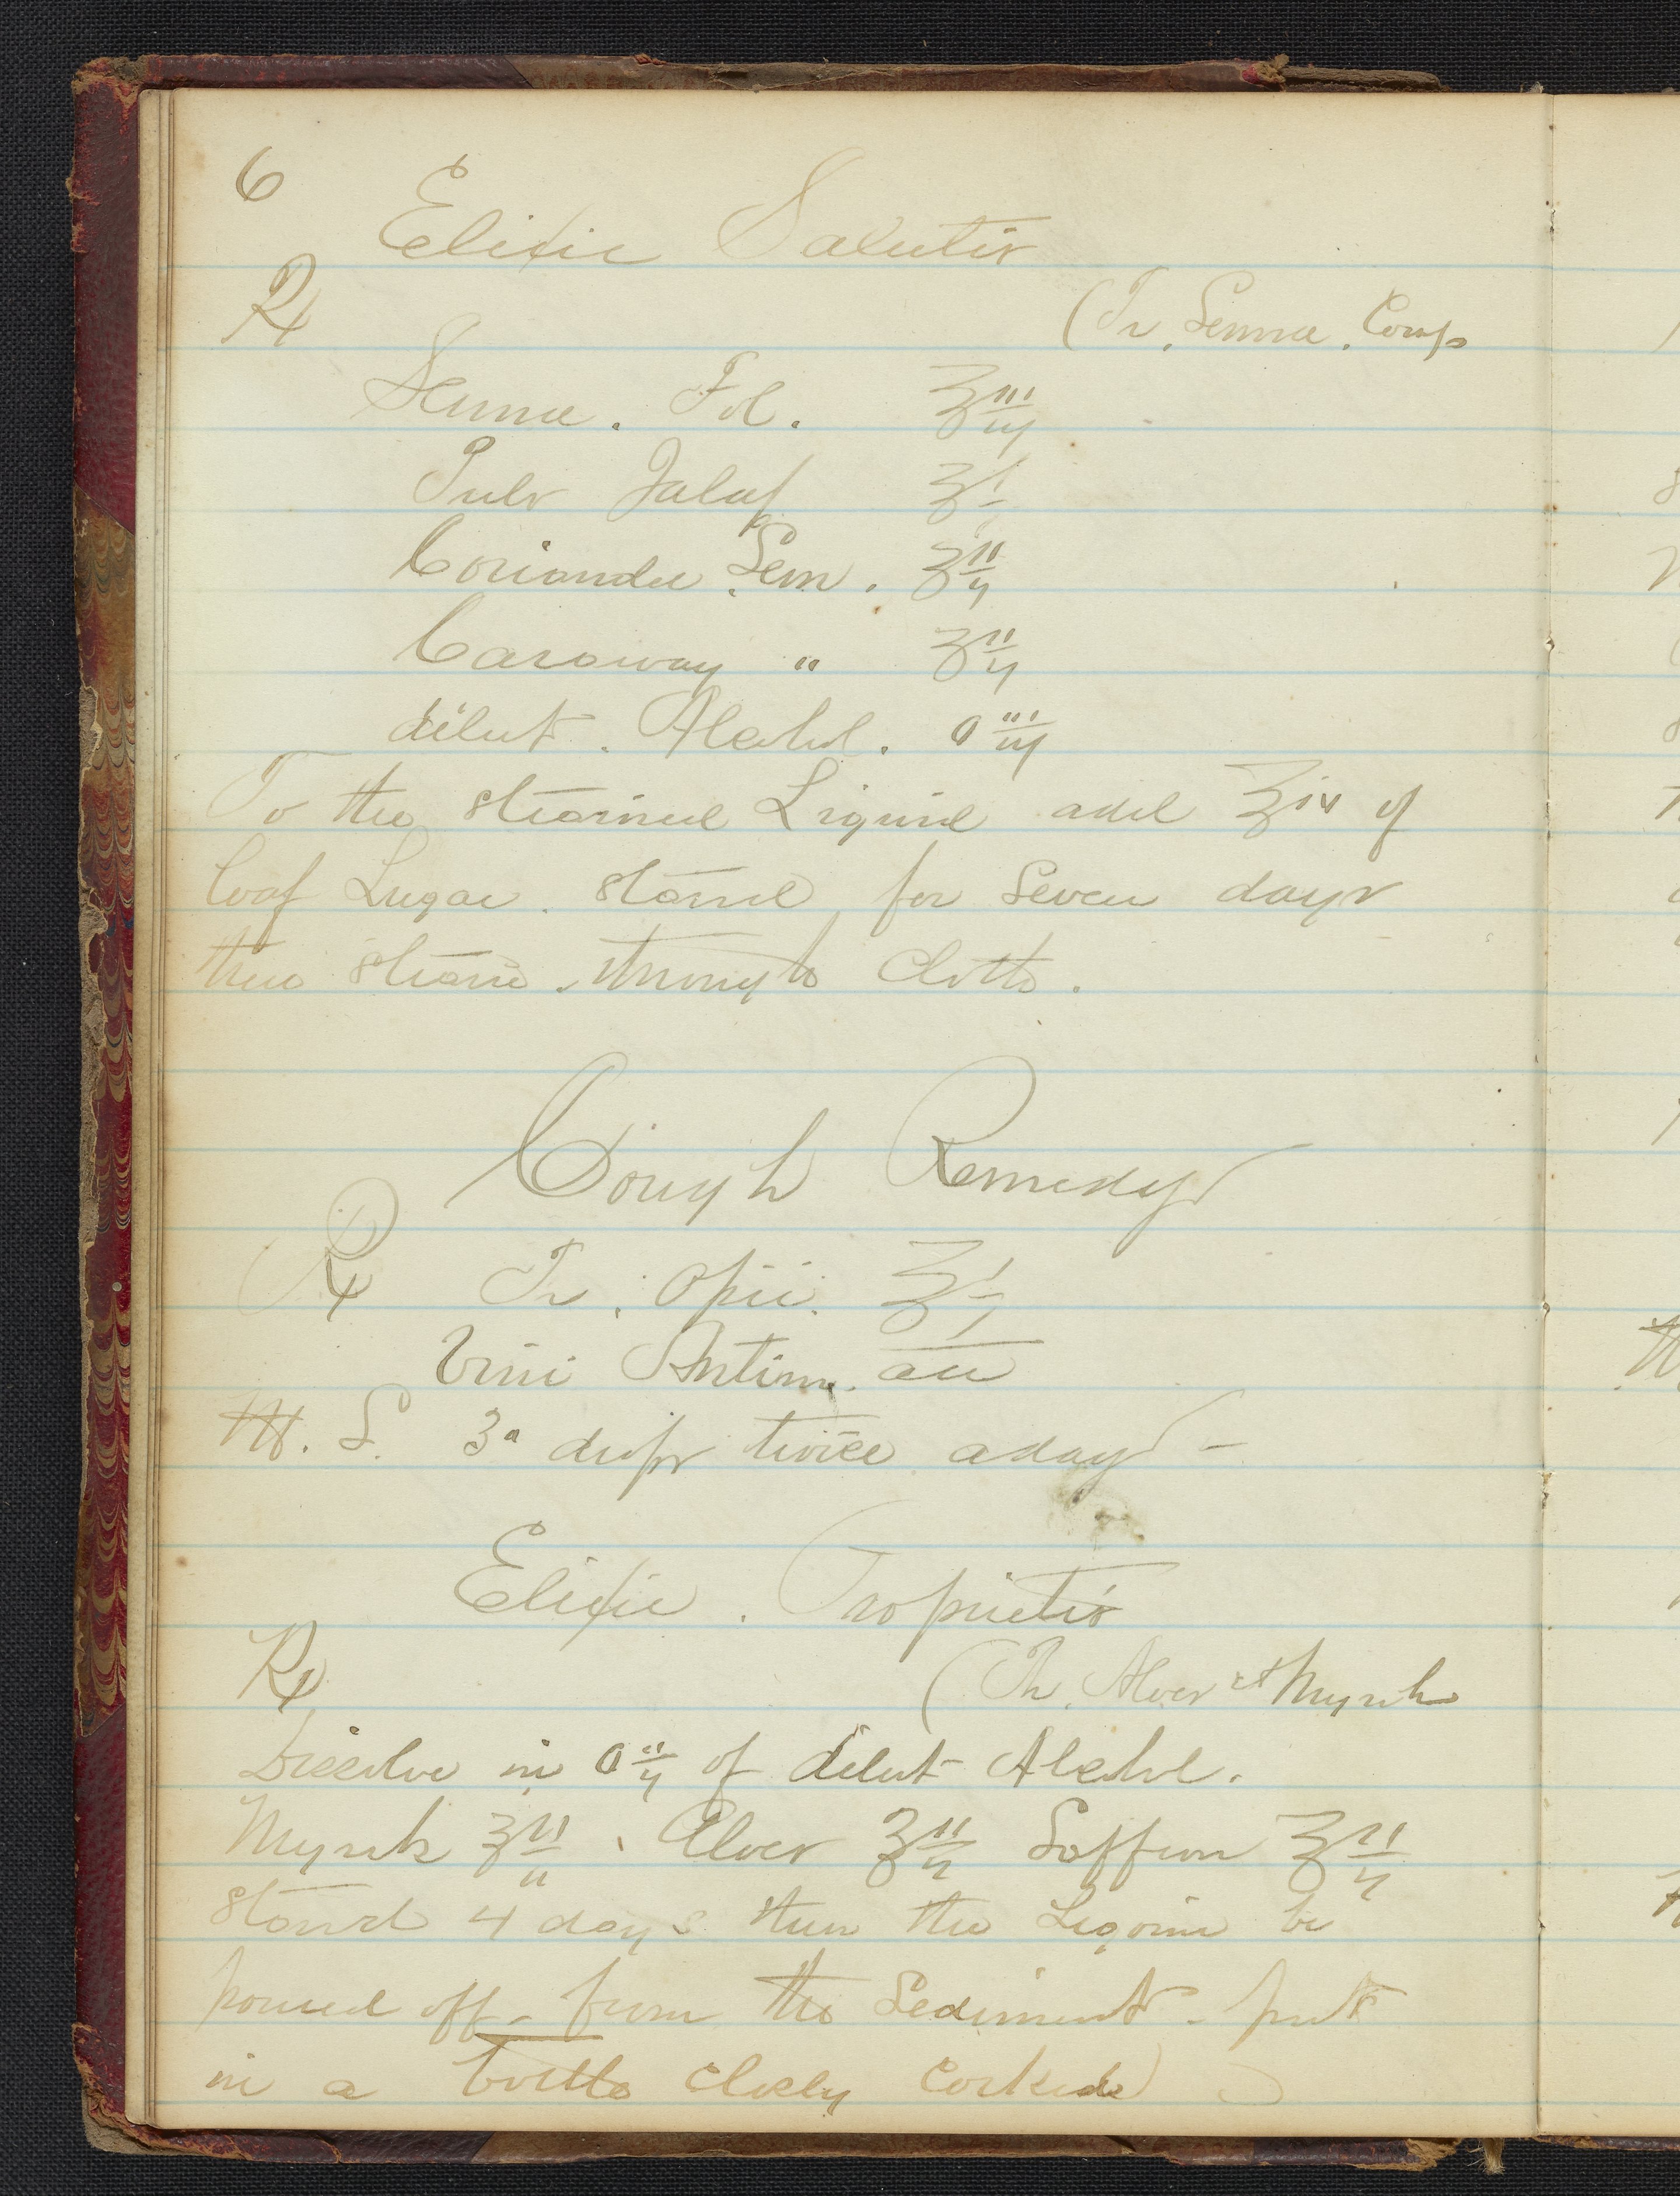 6
Elixir Salutis
℞
(Tr. Senna. Comp
Senna. Fol. ℥iij
Pulv Jalap ℥j
Coriander. Sem. ℥ij
Caraway " ℥ij
dilut. Alcohol. O iij
To the strained Liquid add ℥iv of
loaf Sugar. stand for seven days
then strain through Cloth.
Cough Remedy
℞ Tr. Opii. ℥j
Vini Antim. aa
M. S. 30 drops twice a day –
Elixir. Proprietis
℞
(Tr. Aloes et Myrrh
Dissolve in O ij of dilut Alcohol.
Myrrh ℥ij. Aloes ℥ij Saffron ℥ij
stand 4 days then the Liquine be
poured off – from the Sediment – put
in a bottle closely corked